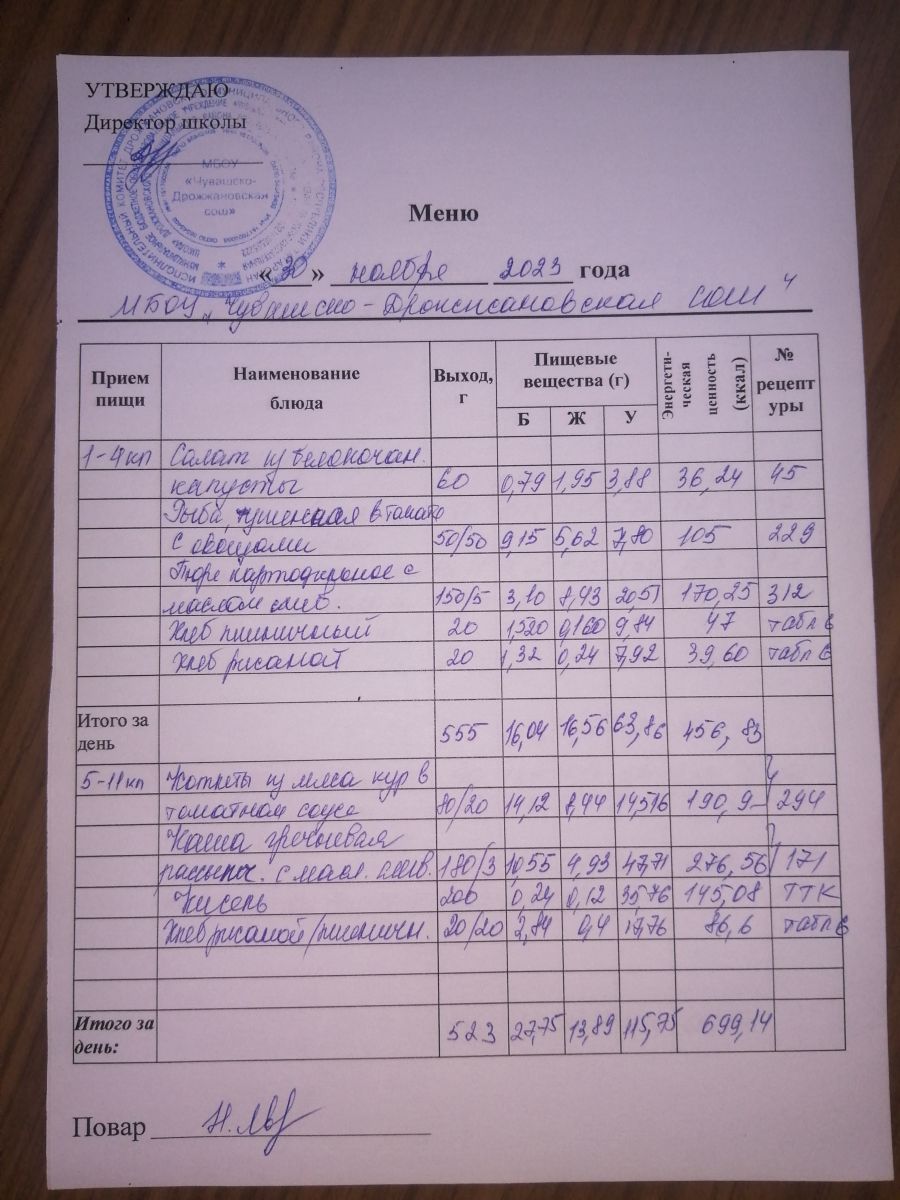 УТВЕРЖДАЮ
Директор школы
МБОУ
«Чувашско-
Дрожжановская
сош»
Меню
«20» ноября 2023 года
МБОУ „Чувашско-Дрожжановская СОШ"
Прием пищи Наименование блюда Выход, г Пищевые вещества (г) Энергети-ческая ценность (ккал) № рецептуры
Б Ж У
1-4кл Салат из белокочан.
капусты 60 0,79 1,95 3,88 36,24 45
Рыба, тушенная в томате
с овощами 50/50 9,15 5,62 7,80 105 229
Пюре картофельное с
маслом слив. 150/5 3,10 8,43 20,51 170,25 312
Хлеб пшеничный 20 1,520 0,160 9,84 47 табл 6
Хлеб ржаной 20 1,32 0,24 7,92 39,60 табл 6
Итого за день 555 16,04 16,56 63,86 456,83
5-11кл Котлеты из мяса кур в
томатном соусе 80/20 14,12 8,44 14,516 190,9 294
Каша гречневая
рассыпч. с масл. слив. 180/3 10,55 4,93 47,71 276,56 171
Кисель 200 0,24 0,12 35,76 145,08 ТТК
Хлеб ржаной/пшеничн. 20/20 2,84 0,4 17,76 86,6 табл 6
Итого за день: 523 27,75 13,89 115,75 699,14
Повар